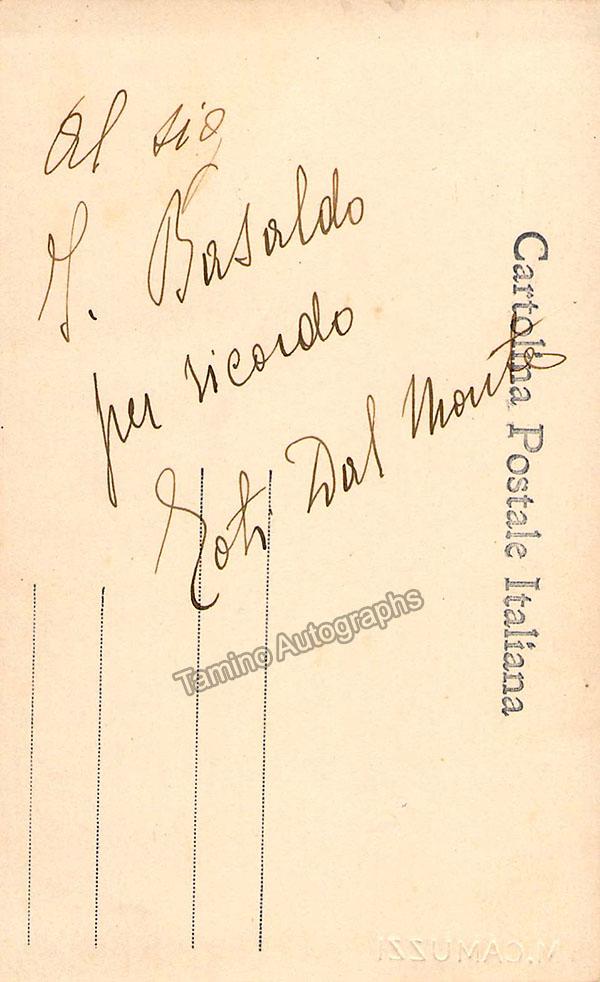 Al sig
G. Basaldo
per ricordo
Toti Dal Monte
Cartolina Postale Italiana
Tamino Autographs
M.CAMUZZI